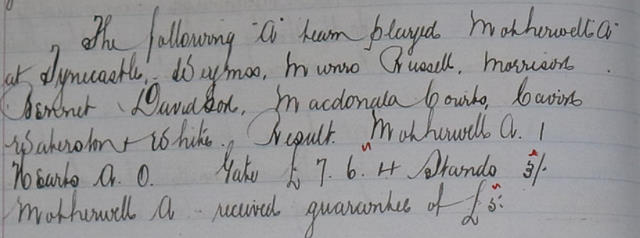 The following "A" team played Motherwell "A"
at Tynecastle, Weymss, Munro Russell, Morrison
Bennet Davidson, Macdonald Couits, Cavin
Waterston + White. Result. Motherwell A. 1
Hearts A. 0. Gate £7.6.4 Stands 3/.
Motherwell A received guarantee of £5.